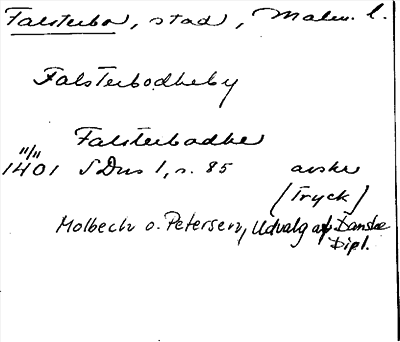 Falsterbo, stad, Malm. l.
Falsterbodheby
Falsterbodhe
11/11
1401 SDns 1, s. 85 avskr
(Tryck)
Molbech o. Petersen, Udvalg af Danske
Dipl.